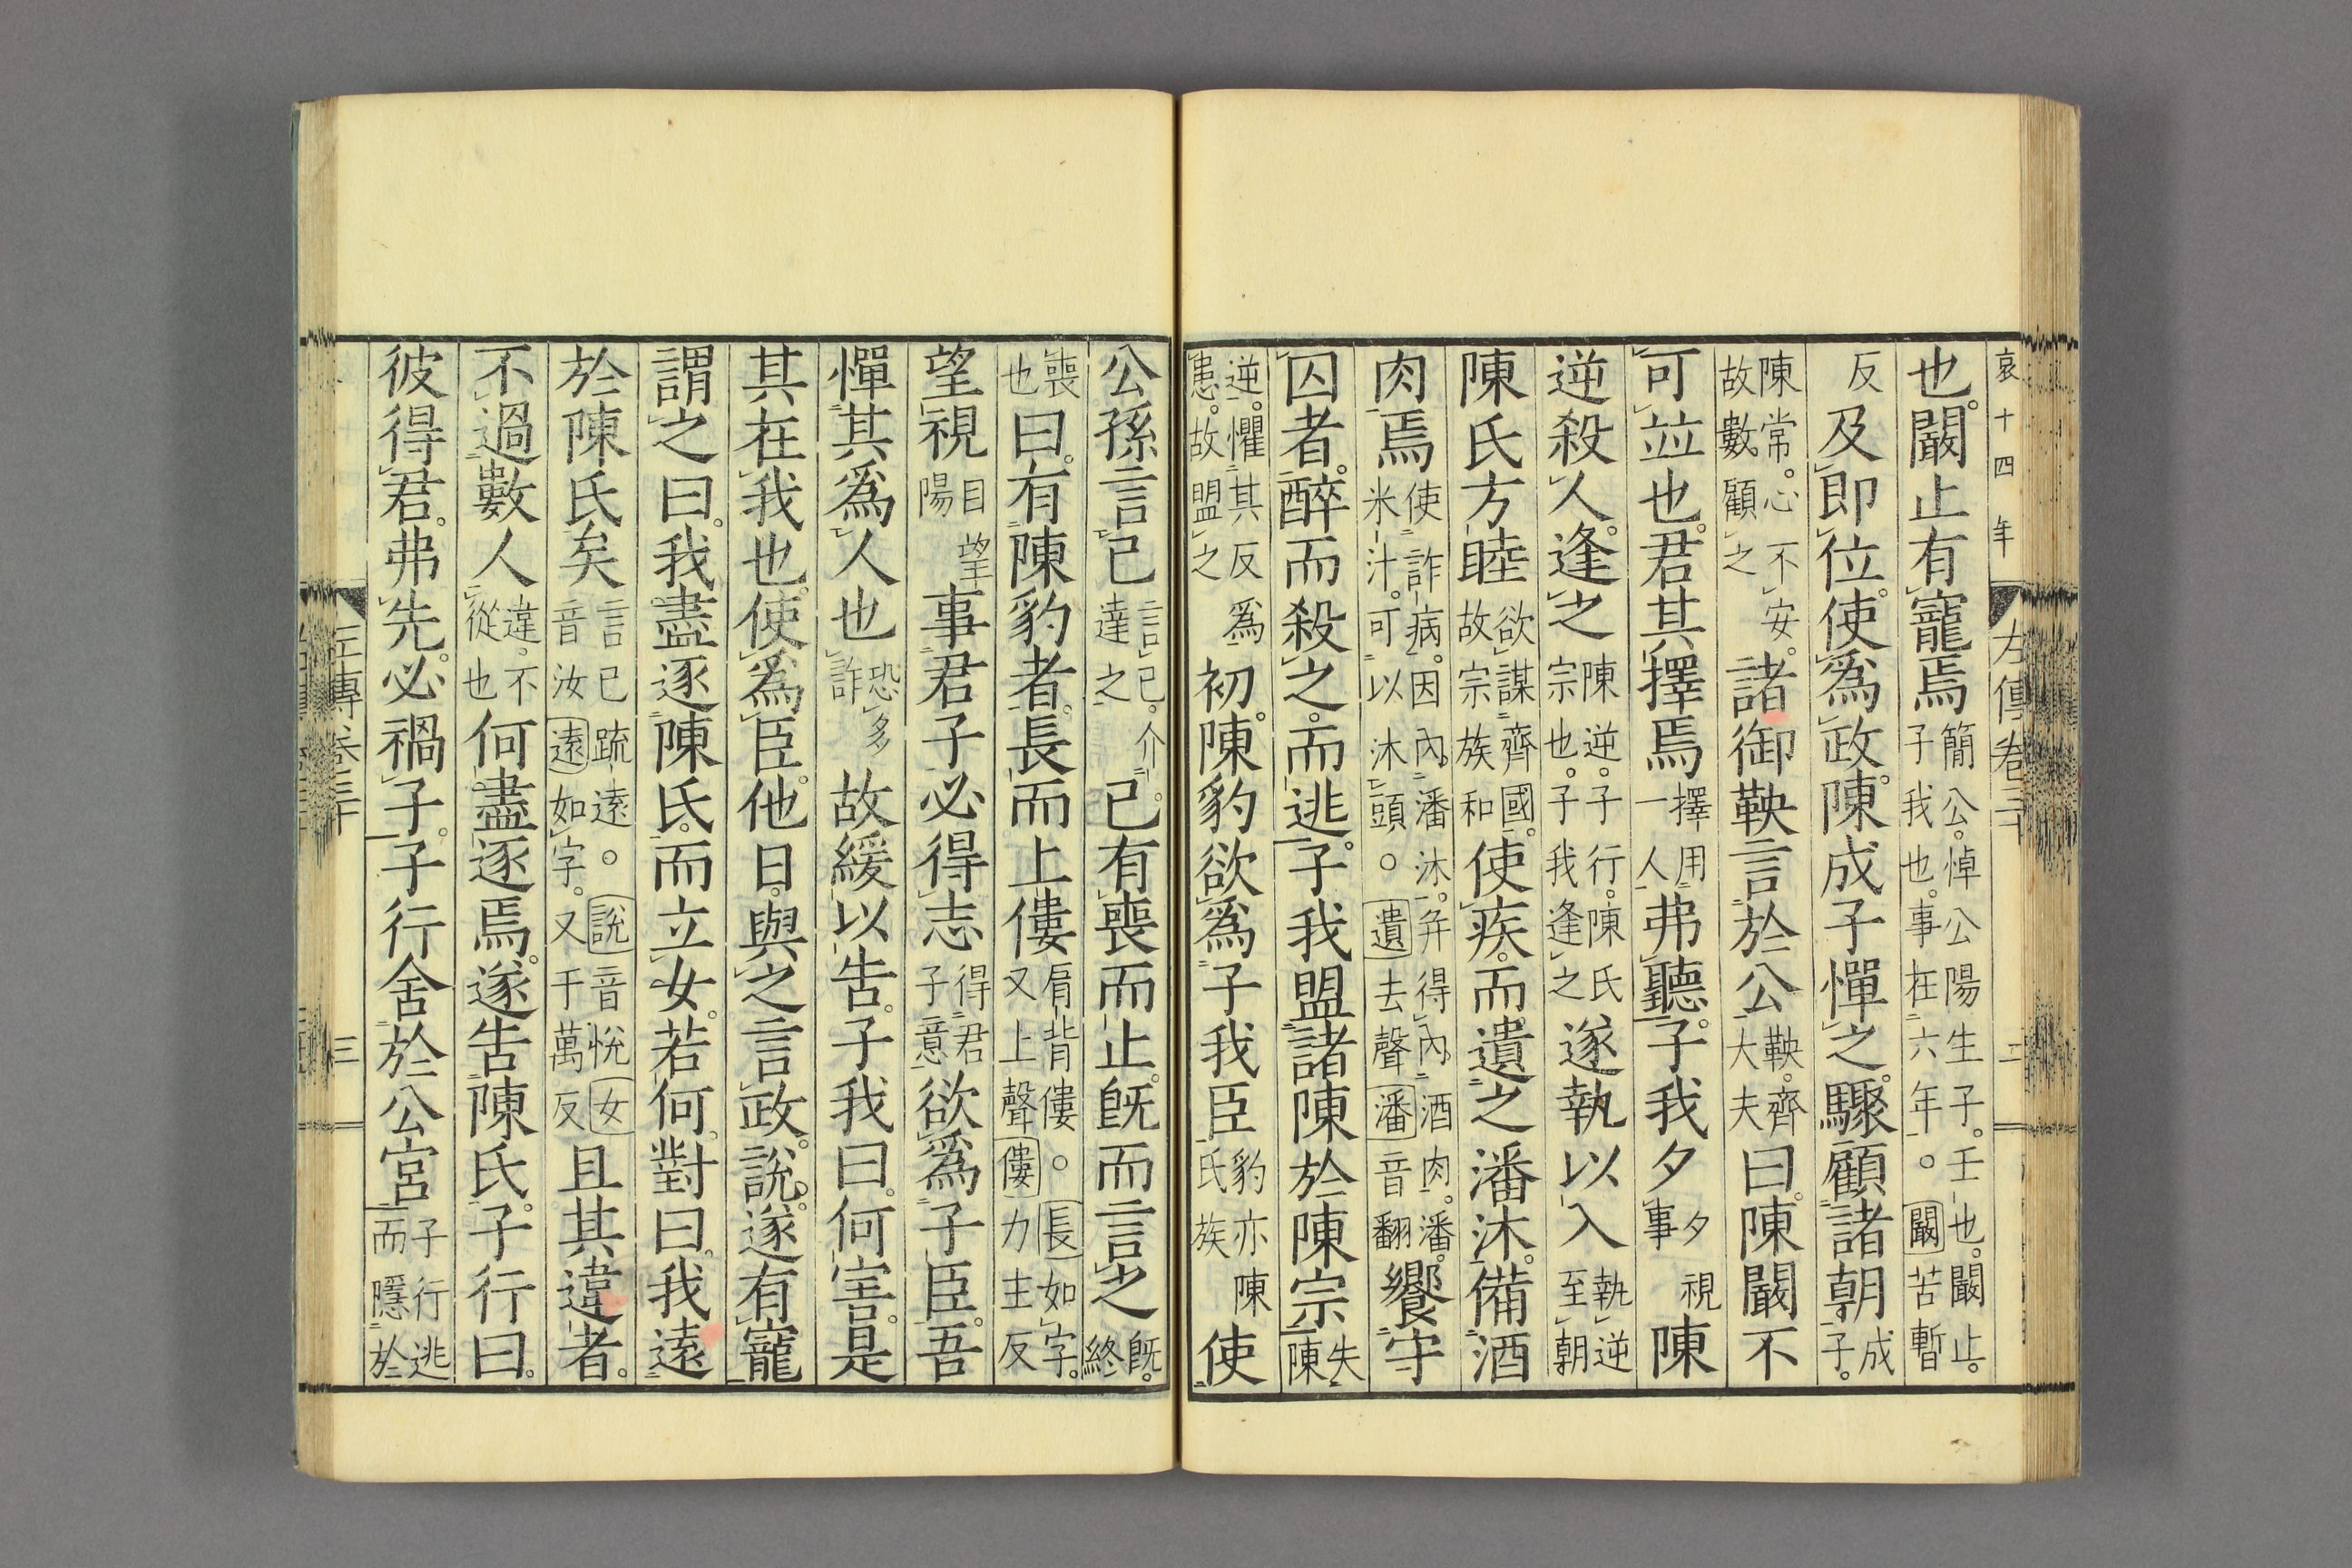 哀十四年　左傳卷三十　二
也。闞止有寵焉簡公。悼公陽生子。壬也。闞止。子我也。事在六年。○闞苦暫
反及即位。使爲政。陳成子憚之。驟顧諸朝成子。
陳常。心不安。故數顧之諸御鞅言於公鞅。齊大夫曰。陳闞不
可竝也。君其擇焉擇用一人弗聽。子我夕夕視事陳
逆殺人。逢之陳逆。子行。陳氏宗也。子我逢之遂執以入執逆至朝
陳氏方睦欲謀齊國。故宗族和使疾。而遺之潘沐。備酒
肉焉使詐病。因內潘沐。幷得內酒肉。潘。米汁。可以沐頭。○遺去聲潘音翻饗守
囚者。醉而殺之。而逃。子我盟諸陳於陳宗失陳
逆。懼其反爲患。故盟之初。陳豹欲爲子我臣豹亦陳氏族使
公孫言己言己。介達之已。有喪而止。既而言之既。終
喪也曰。有陳豹者。長而上僂肩背僂。○長如字。又上聲僂力主反
望視目望陽事君子必得志得君子意欲爲子臣。吾
憚其爲人也恐多詐故緩以告。子我曰。何害。是
其在我也。使爲臣。他日。與之言政。說。遂有寵
謂之曰。我盡逐陳氏。而立女。若何。對曰。我遠
於陳氏矣言己疏遠。○說音悅女音汝遠如字。又于萬反且其違者。
不過數人違。不從也何盡逐焉。遂告陳氏。子行曰。
彼得君。弗先。必禍子。子行舍於公宮子行逃而隱於
左傳卷三十　三